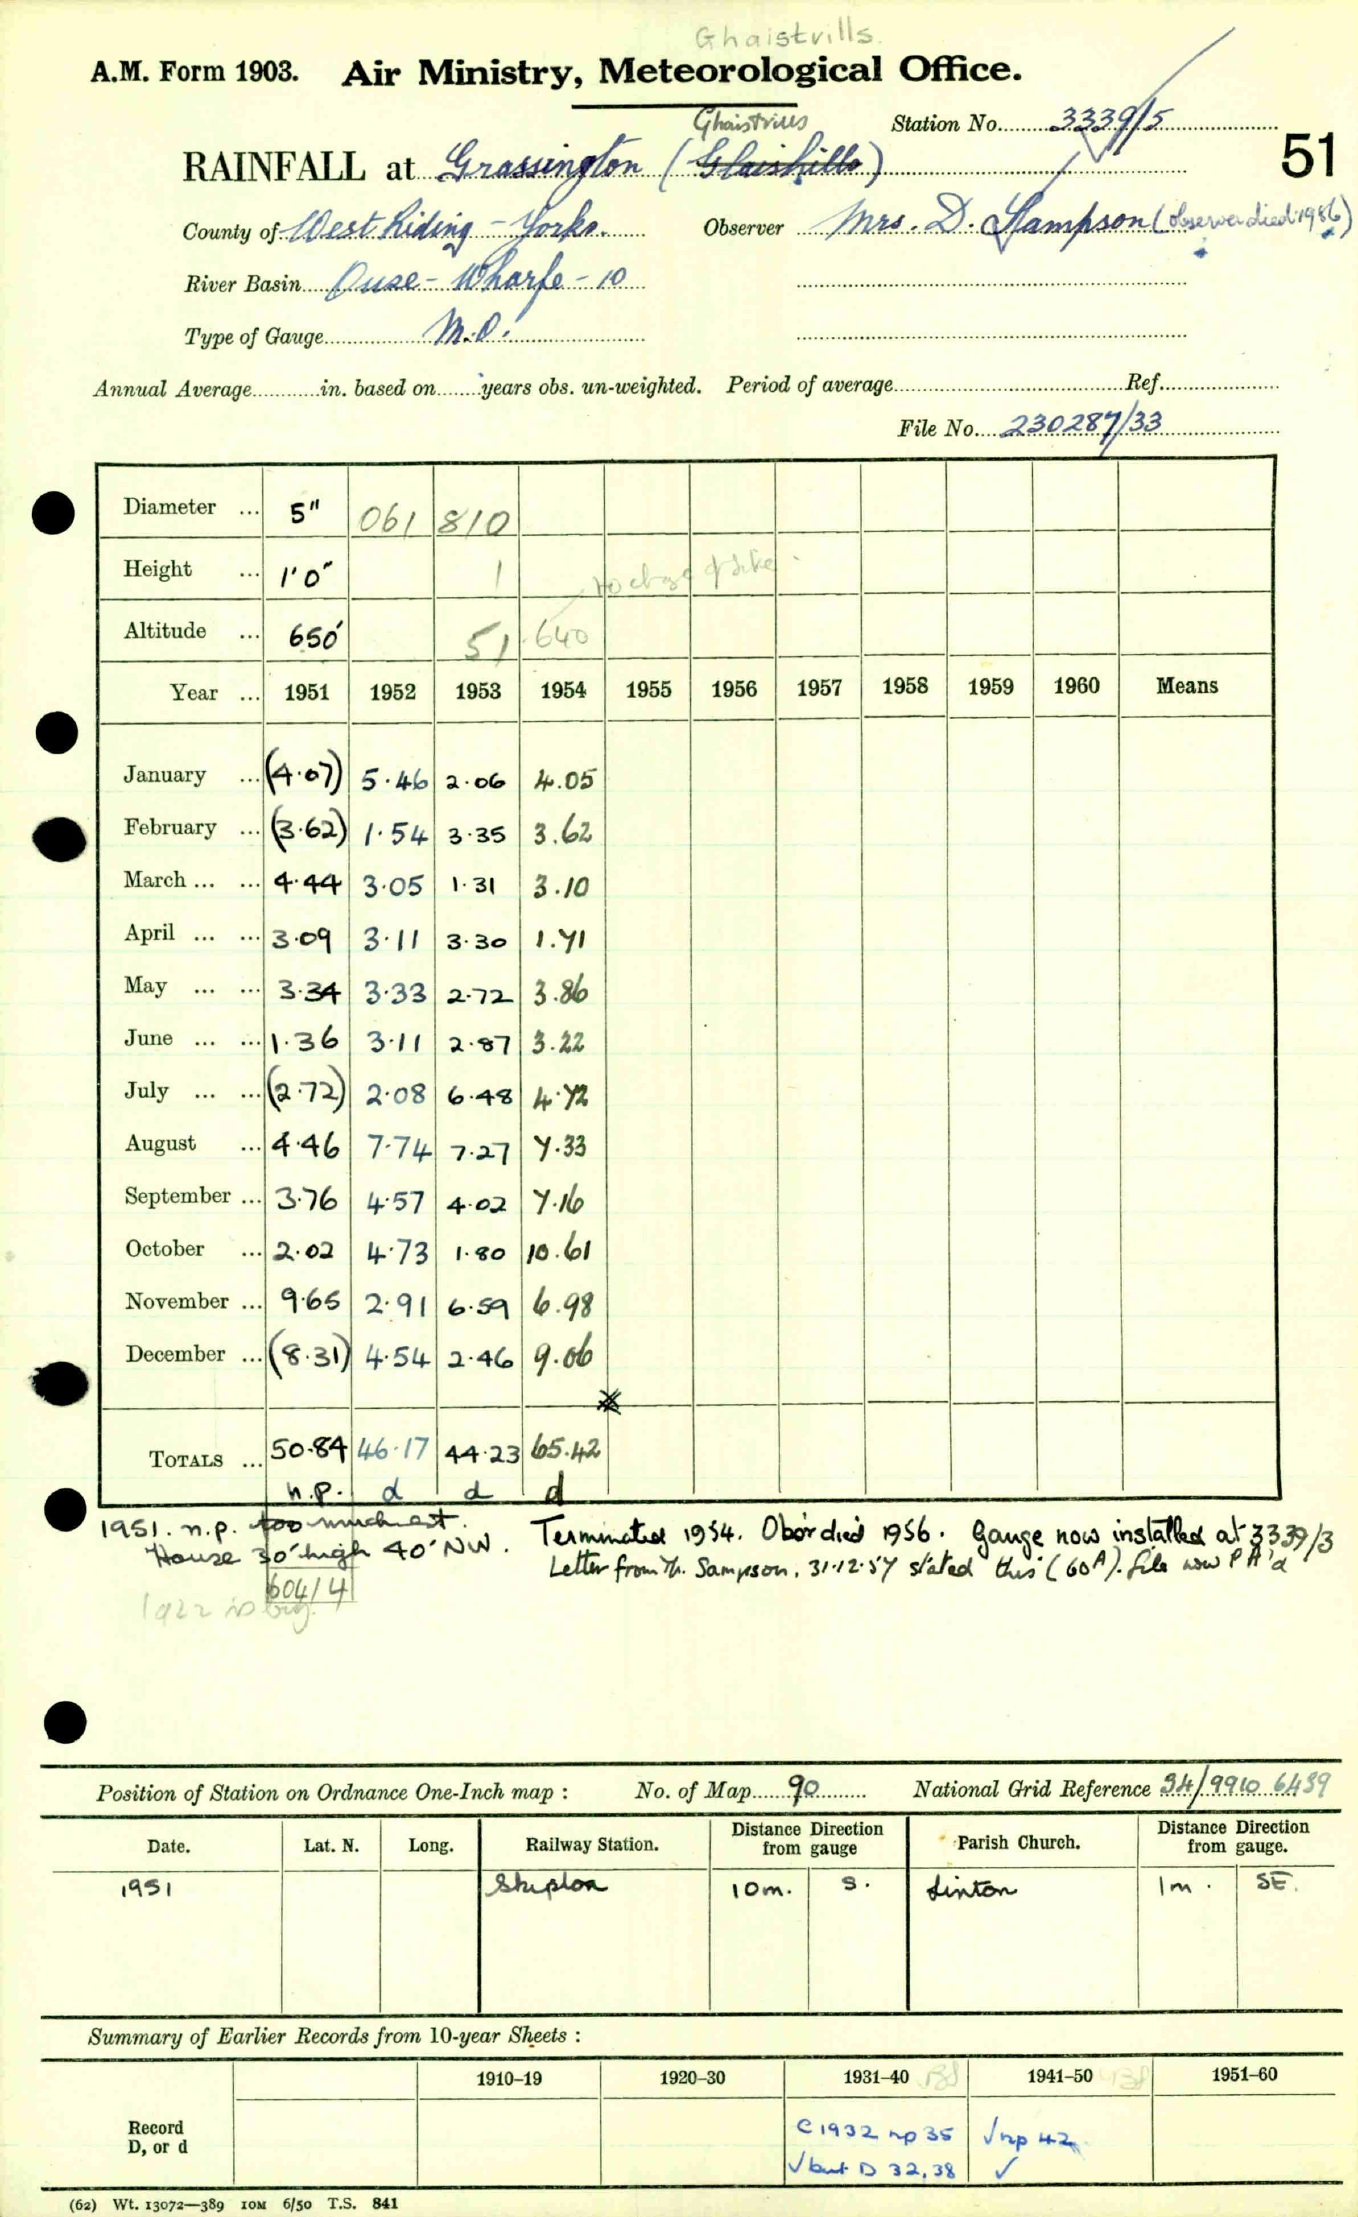 Ghaistrills.
A.M. Form 1903. Air Ministry, Meteorological Office.
Ghaistrills
Station No. 3339/5
51
RAINFALL at Grassington (Glaishills)
County of West Riding - Yorks. Observer Mrs. D. Sampson (observer died 1956)
River Basin Ouse - Wharfe - 10
Type of Gauge M.O.
Annual Average in. based on years obs. un-weighted. Period of average Ref.
File No. 230287/33
Diameter ... 5" 061 810
Height ... 1'0" 1 no change of site.
Altitude ... 650' 51 640
Year ... 1951 1952 1953 1954 1955 1956 1957 1958 1959 1960 Means
January ... (4.07) 5.46 2.06 4.05
February ... (3.62) 1.54 3.35 3.62
March ... ... 4.44 3.05 1.31 3.10
April ... ... 3.09 3.11 3.30 1.71
May ... ... 3.34 3.33 2.72 3.86
June ... ... 1.36 3.11 2.87 3.22
July ... ... (2.72) 2.08 6.48 4.72
August ... 4.46 7.74 7.27 7.33
September ... 3.76 4.57 4.02 7.16
October ... 2.02 4.73 1.80 10.61
November ... 9.65 2.91 6.59 6.98
December ... (8.31) 4.54 2.46 9.06
TOTALS ... 50.84 46.17 44.23 65.42
n.p. d d d
1951. n.p. too much est. Terminated 1954. Obsr died 1956. Gauge now installed at 3339/3
House 30' high 40' NW. Letter from Mr. Sampson, 31.12.57 stated this (60A). file now P A'd
604/4
1922 is beg.
Position of Station on Ordnance One-Inch map : No. of Map 90 National Grid Reference 34/9910 6439
Date. Lat. N. Long. Railway Station. Distance Direction from gauge Parish Church. Distance Direction from gauge.
1951 Skipton 10m. S. Linton 1m. SE.
Summary of Earlier Records from 10-year Sheets :
1910–19 1920–30 1931–40 1941–50 1951–60
Record
D, or d
C1932 np 35 √np 42
√but D 32,38 √
(62) Wt. 13072—389 10M 6/50 T.S. 841